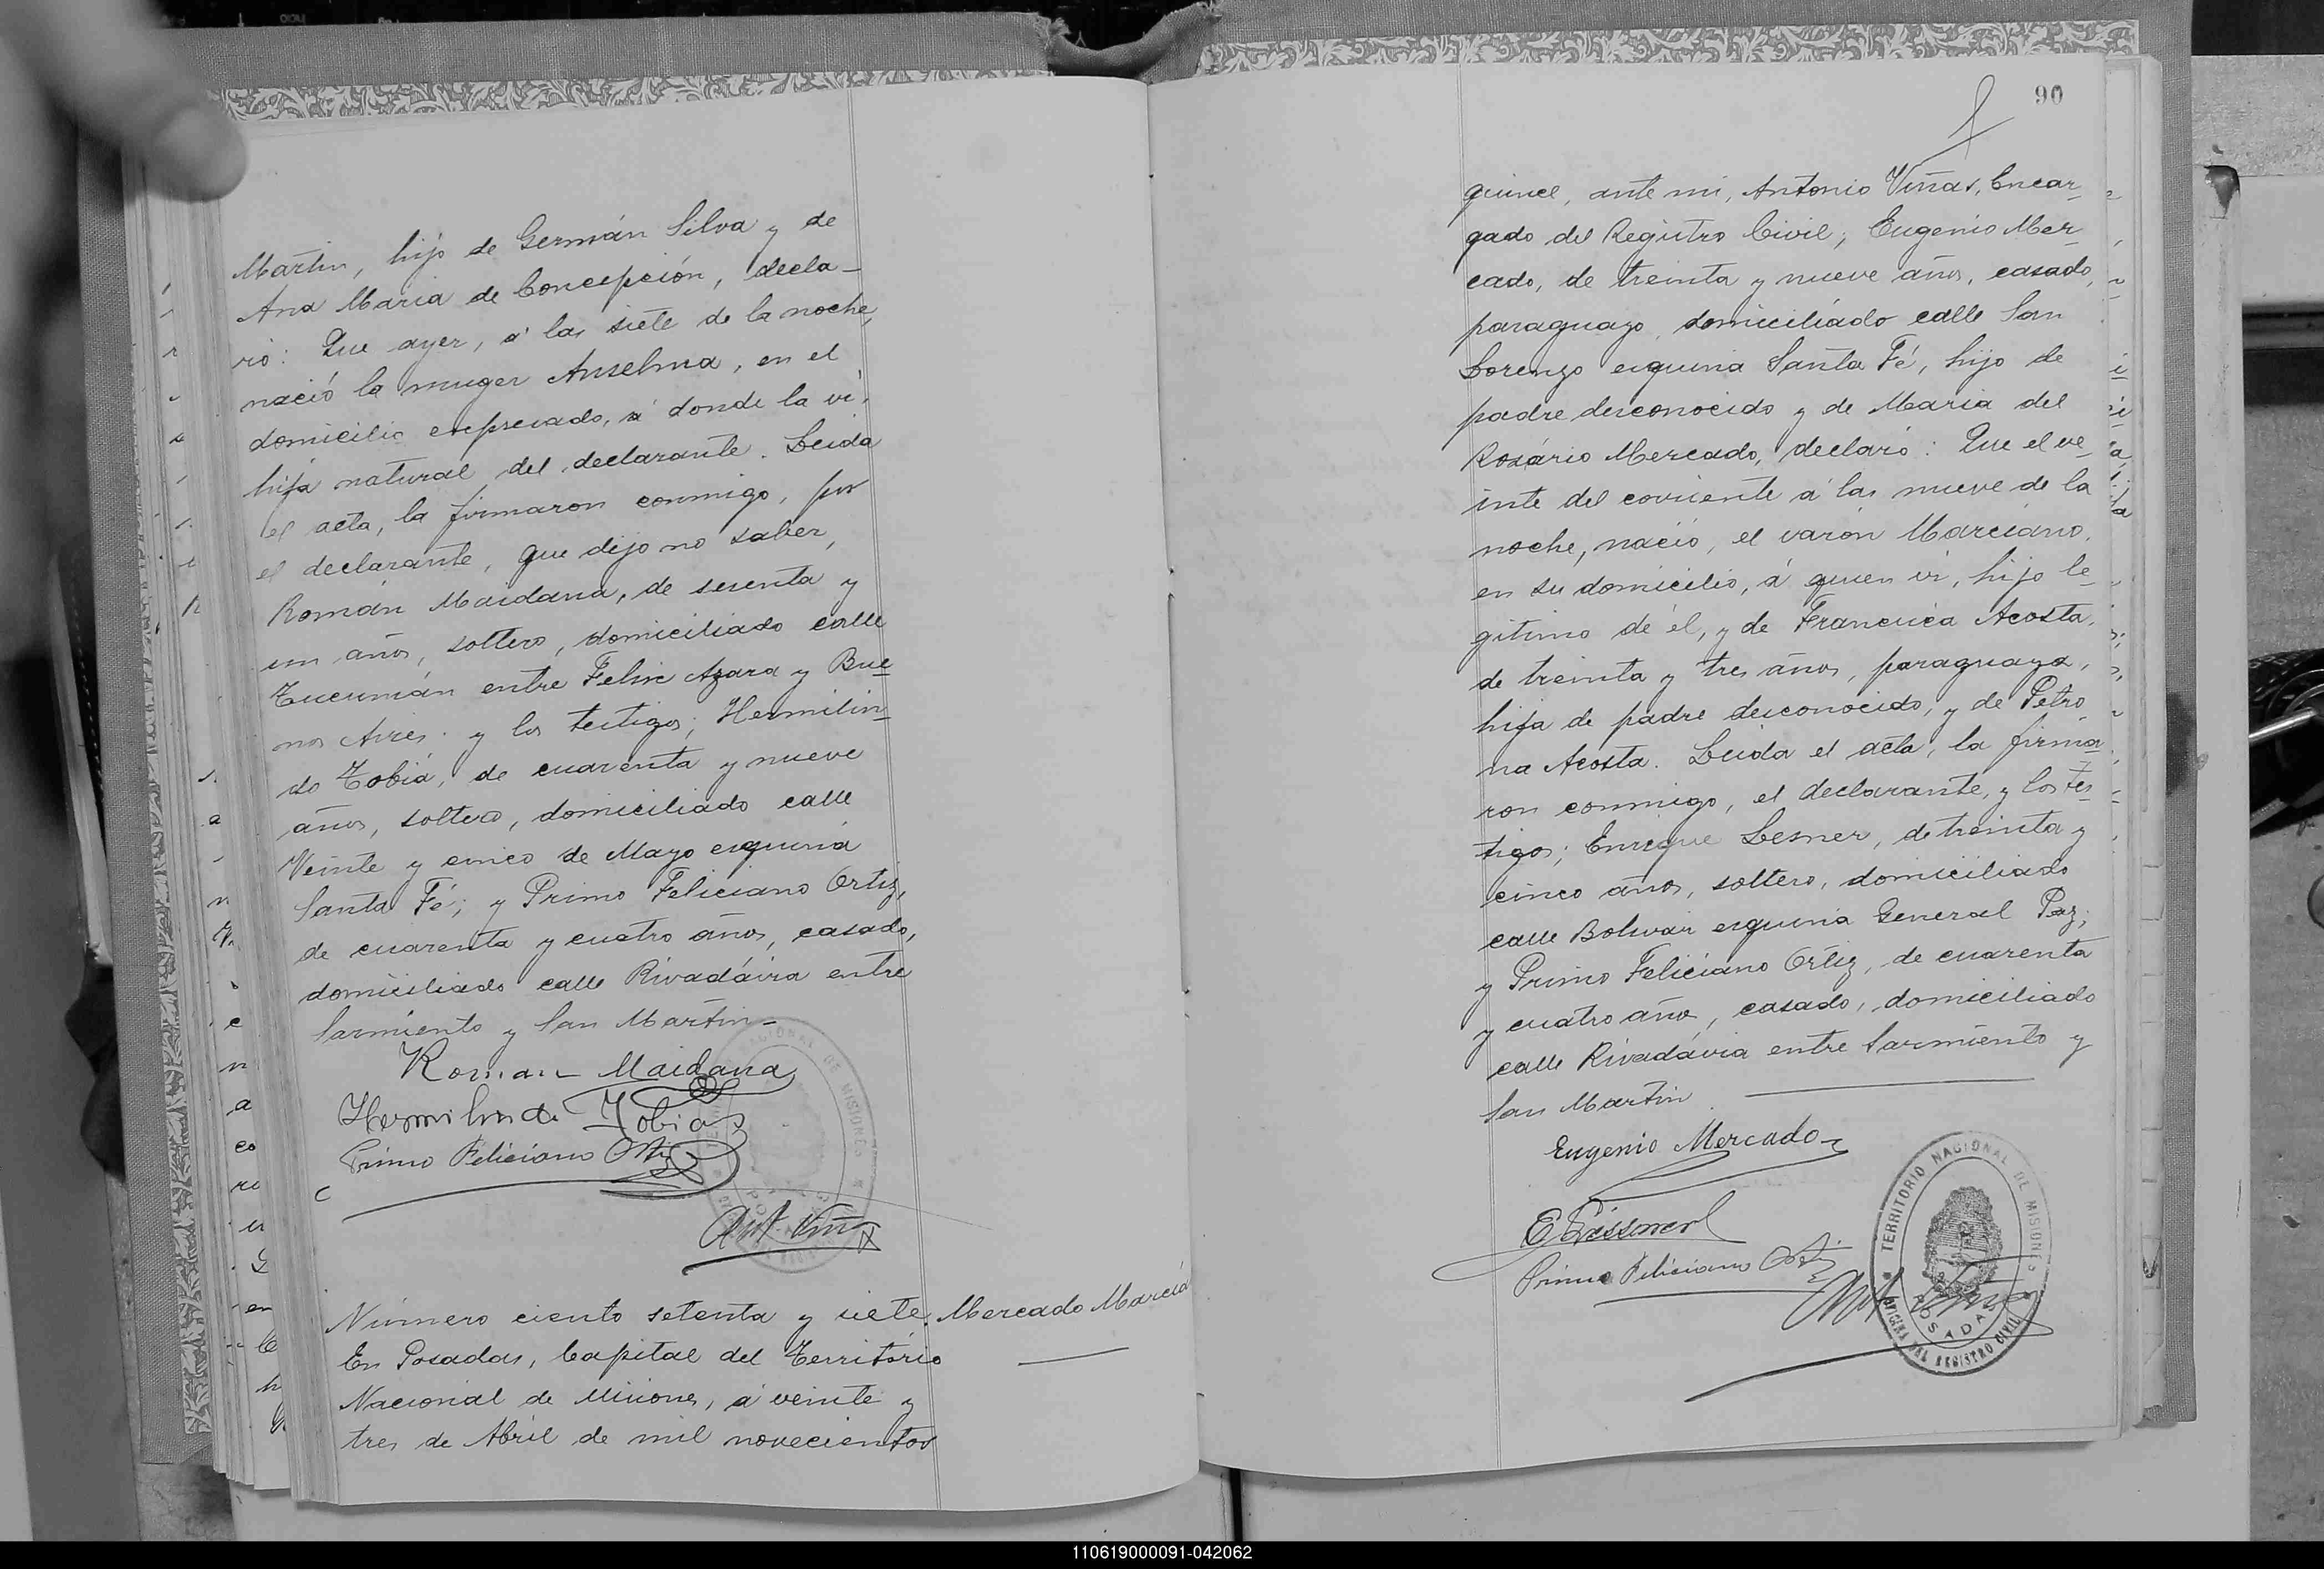 Martin, hijo de Germán Silva y de
Ana Maria de Concepción, decla-
ró: Que ayer, á las siete de la noche,
nació la muger Anselma, en el
domicilio expresado, á donde la ví,
hija natural del declarante. Leida
el acta, la firmaron conmigo, por
el declarante, que dijo no saber,
Román Maidana, de sesenta y
un años, soltero, domiciliado calle
Tucumán entre Felix Azara y Bue-
nos Aires; y los testigos; Hermilin-
do Tobia, de cuarenta y nueve
años, soltero, domiciliado calle
Veinte y cinco de Mayo esquina
Santa Fé; y Primo Feliciano Ortiz,
de cuarenta y cuatro años, casado,
domiciliado calle Rivadávia entre
Sarmiento y San Martin-
Roman Maidana
Hermilindo Tobias
Primo Feliciano Ortiz
Ant Viñas
Número ciento setenta y siete. Mercado Marcia
En Posadas, Capital del Território
Nacional de Misiones, á veinte y
tres de Abril de mil novecientos
90
quince, ante mi, Antonio Viñas, Encar-
gado del Registro Civil; Eugenio Mer-
cado, de treinta y nueve años, casado,
paraguayo, domiciliado calle San
Lorenzo esquina Santa Fé, hijo de
padre desconocido y de Maria del
Rosário Mercado, declaró: Que el ve-
inte del corriente á las nueve de la
noche, nació, el varón Marciano,
en su domicilio, á quien ví, hijo le-
gitimo de él, y de Francisca Acosta,
de treinta y tres años, paraguaya,
hija de padre desconocido, y de Petro
na Acosta. Leida el acta, la firma-
ron conmigo, el declarante, y los tes-
tigos; Enrique Lesner, de treinta y
cinco años, soltero, domiciliado
calle Bolivar esquina General Paz;
y Primo Feliciano Ortiz, de cuarenta
y cuatro años, casado, domiciliado
calle Rivadávia entre Sarmiento y
San Martin
Eugenio Mercado
E Lissner
Primo Feliciano Ortiz
Ant Viñas
TERRITORIO NACIONAL DE MISIONES
POSADAS
OFICINA DEL REGISTRO CIVIL
110619000091-042062